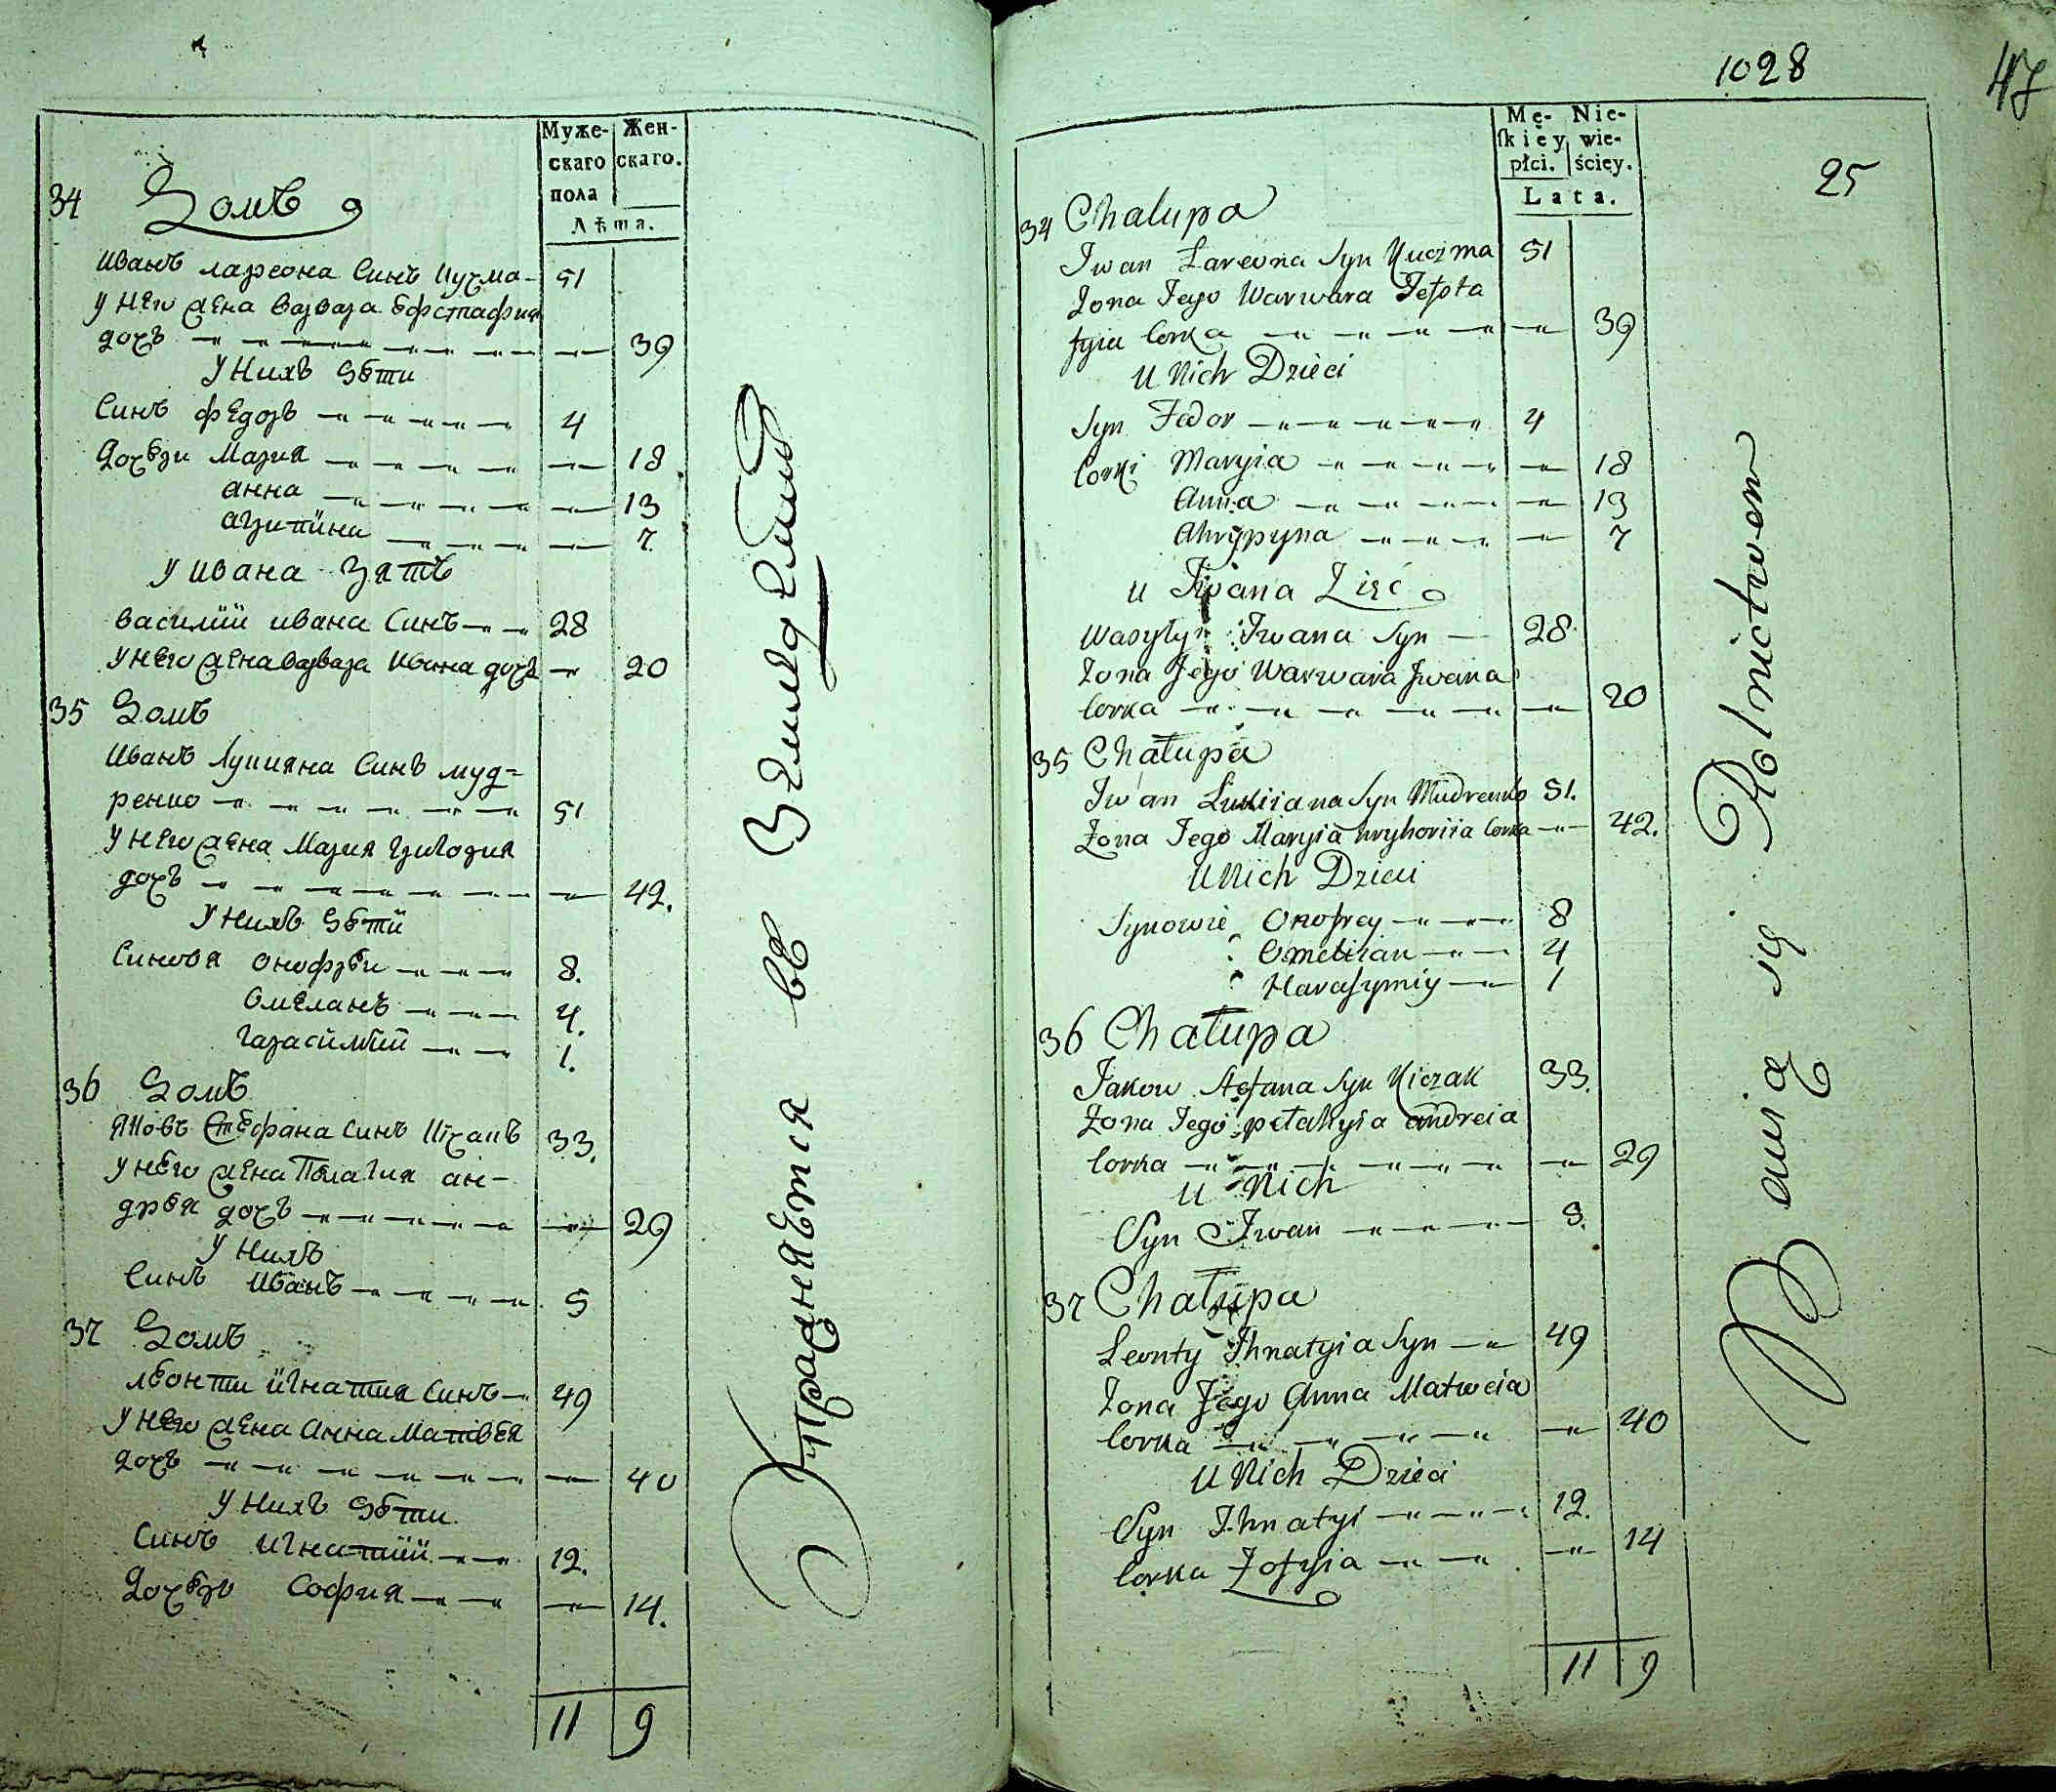 Муже-
скаго
пола
Жен-
скаго.
Лѣта.
34 Домъ
Иванъ лариона Синъ Кучма 51
у него жена варвара Євстафия
дочъ 39
У Нихъ дѣти
Синъ федоръ 4
Дочѣри Мария 18
анна 13
агрипина 7.
У ивана Зять
василий ивана Синъ 28
У него жена варвара ивана дочъ 20
35 Домъ
Иванъ лукияна Синъ муд=
ренко 51
У него жена Мария григория
дочъ 42.
У Нихъ дѣти
Синовя онофрѣи 8.
Омеланъ 4.
гарасимѣй 1.
36 Домъ
яковъ Стефана Синъ Кѣчакъ 33.
У него жена Пелагия ан-
дрея дочъ 29
У Нихъ
Синъ иванъ 9
37 Домъ
лѣонти игнатия Синъ 49
У него жена Анна Матвѣя
дочъ 40
У Нихъ дѣти.
Синъ игнатий 12.
Дочѣръ София 14.
11 9
Упражняется въ Земледелии
1028
47
25
Mę-
skiey
płci.
Nie-
wie-
ściey.
Lata.
34 Chalupa
Iwan Lareona Syn Kuczma 51
Żona Jego Warwara Jefsta
fyia Corka 39
U Nich Dzieci
Syn Fedor 4
Corki Maryia 18
Anna 13
Ahrypyna 7
u Iwana Zięć
Wasylyi Iwana Syn 28
Żona Jego Warwara Iwana
Corka 20
35 Chałupa
Iwan Lukiiana Syn Mudrenko 51.
Żona Jego Maryia hryhoriia Corka 42.
U Nich Dzieci
Synowie Onofrey 8
Omeliian 4
Harasymiy 1
36 Chałupa
Jakow Stefana Syn Kiczak 33.
Żona Jego pełahyia andreia
Corka 29
U Nich
Syn Iwan 9.
37 Chałupa
Leonty Ihnatyia Syn 49
Żona Jego Anna Matweia
Corka 40
U Nich Dzieci
Syn Ihnatyi 12.
Corka Zofyia 14
11 9
Bawią się Rolnictwem